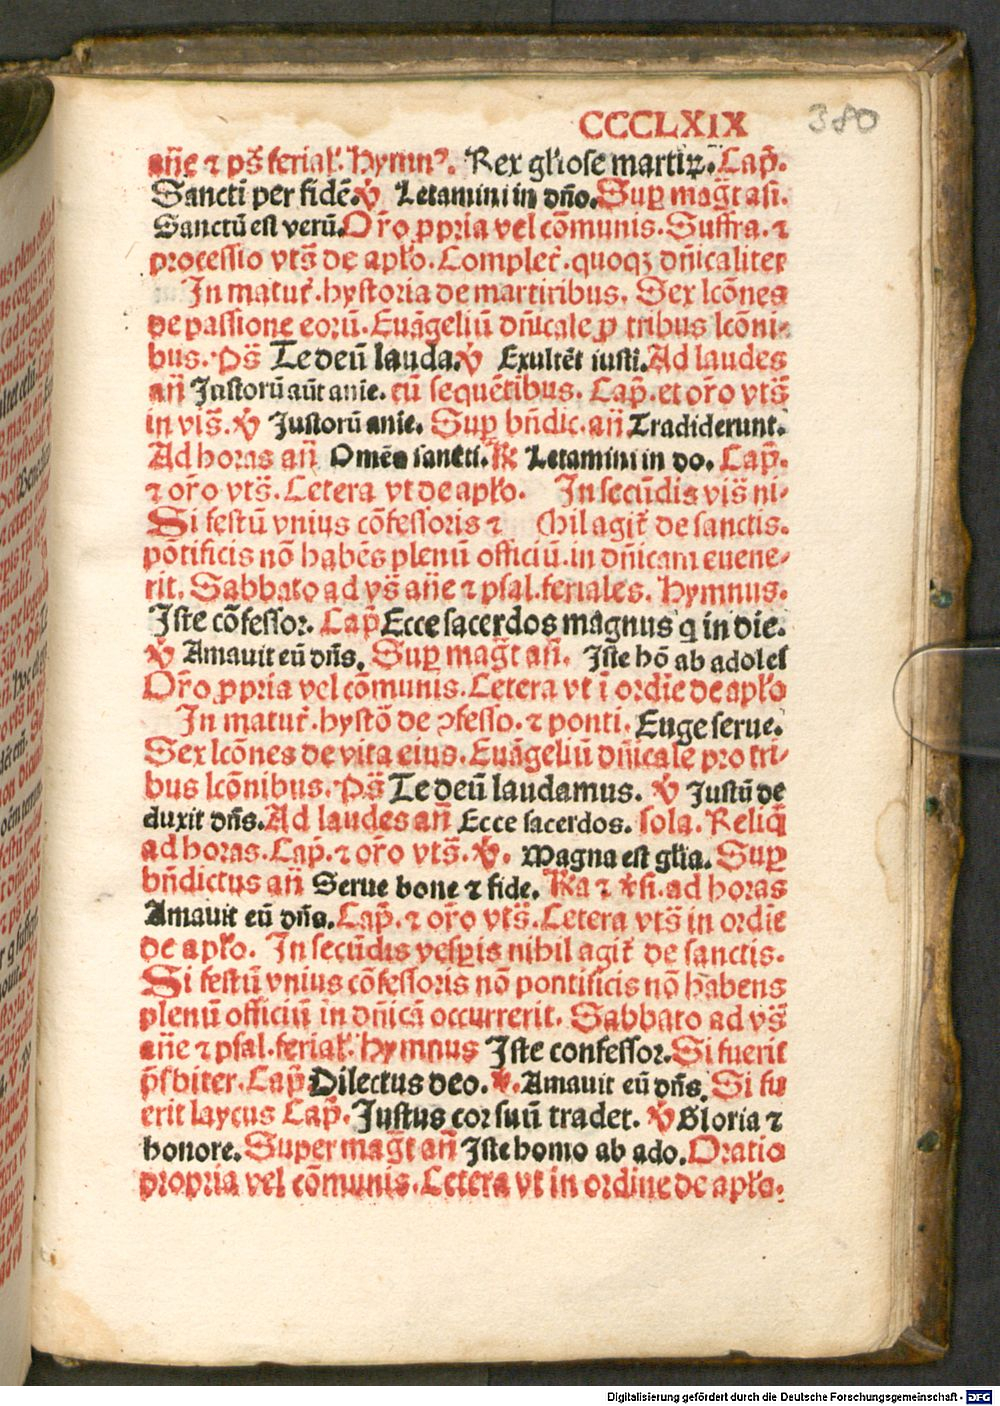 CCCCLXIX 380
añe ⁊ ps̃ ferial̃. Hymnꝰ. Rex gl̃iose martiꝝ. Cap̃.
Sancti per fidẽ. ꝟ Letamini in dño. Suꝑ mag̃t añ.
Sanctũ est verũ. Or̃o ꝓpria vel cõmunis. Suffra. ⁊
processio vts̃ de apl̃o. Complet̃. quoqꝫ dñicaliter
In matut̃. hystoria de martiribus. Sex lcõnes
de passione eorũ. Euãgeliũ dñicale ꝓ tribus lcõni-
bus. Ps̃ Te deũ lauda. ꝟ Exultẽt iusti. Ad laudes
añ Justorũ aũt anie. cũ sequẽtibus. Cap̃. et or̃o vts̃
in vis̃. ꝟ Justorũ anie. Suꝑ bñdic. añ Tradiderunt.
Ad horas añ Omẽs sancti. ꝶ Letamini in do. Cap̃.
⁊ or̃o vts̃. Cetera vt de apl̃o. In secũdis vis̃ ni-
Si festũ vnius cõfessoris ⁊ hil agit̃ de sanctis.
põtificis nõ habẽs plenũ officiũ. in dñicam euene-
rit. Sabbato ad vs̃ añe ⁊ psal. feriales. Hymnus.
Iste cõfessor. Cap̃ Ecce sacerdos magnus q in die.
ꝟ Amauit eũ dñs. Suꝑ mag̃t añ. Iste hõ ab adoles
Or̃o ꝓpria vel cõmunis. Cetera vt ĩ ordĩe de apl̃o
In matut̃. hystõ de ↄfesso. ⁊ ponti. Euge serue.
Sex lcõnes de vita eius. Euãgeliũ dñicale pro tri-
bus lcõnibus. Ps̃ Te deũ laudamus. ꝟ Justũ de
duxit dñs. Ad laudes añ Ecce sacerdos. sola. Reliq̃
ad horas. Cap̃. ⁊ or̃o vts̃. ꝟ. Magna est gl̃ia. Suꝑ
bñdictus añ Serue bone ⁊ fide. ꝶa ⁊ ꝟsi. ad horas
Amauit eũ dñs. Cap̃. ⁊ or̃o vts̃. Cetera vts̃ in ordie
de apl̃o. In secũdis vesꝑis nihil agit̃ de sanctis.
Si festũ vnius cõfessoris nõ pontificis nõ habens
plenũ officiũ in dñicã occurrerit. Sabbato ad vs̃
añe ⁊ psal. ferial̃. Hymnus Iste confessor. Si fuerit
p̃sbiter. Cap̃ Dilectus deo. ꝟ. Amauit eũ dñs. Si fu
erit laycus Cap̃. Justus cor suũ tradet. ꝟ Gloria ⁊
honore. Super mag̃t añ Iste homo ab ado. Oratio
propria vel cõmunis. Cetera vt in ordine de apl̃o.
Digitalisierung gefördert durch die Deutsche Forschungsgemeinschaft - DFG